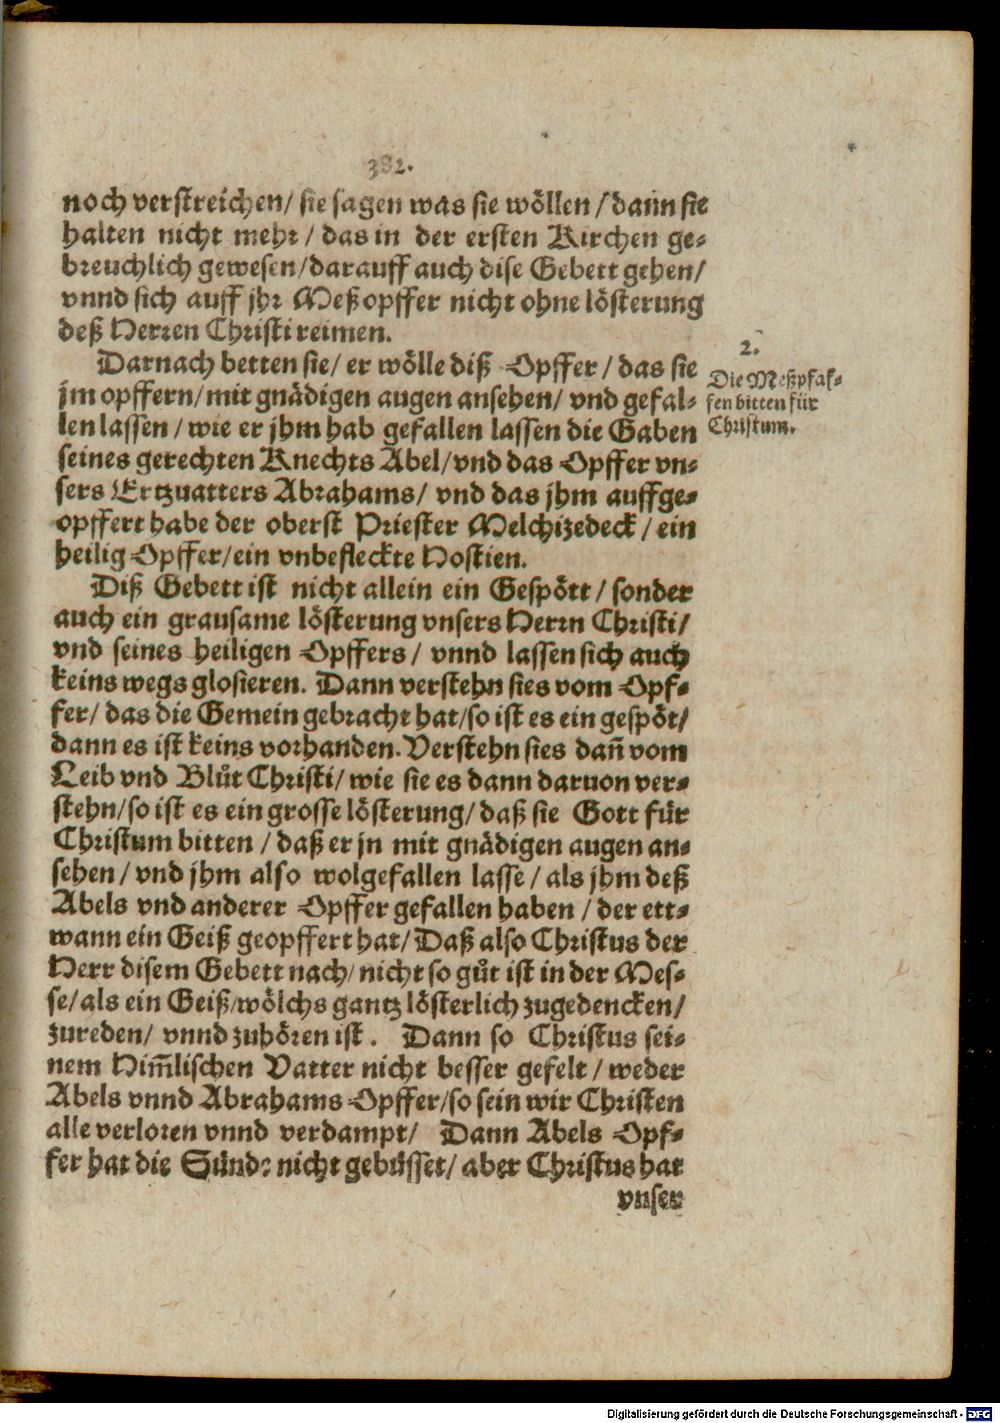 382.
noch verstreichen/ sie sagen was sie wöllen / dann sie
halten nicht mehr / das in der ersten Kirchen ge-
breuchlich gewesen/darauff auch dise Gebett gehen/
vnnd sich auff jhr Meßopffer nicht ohne lösterung
deß Herren Christi reimen.
Darnach betten sie/ er wölle diß Opffer / das sie
jm opffern/ mit gnädigen augen ansehen/ vnd gefal-
len lassen / wie er jhm hab gefallen lassen die Gaben
seines gerechten Knechts Abel/vnd das Opffer vn-
sers Ertzuatters Abrahams/ vnd das jhm auffge-
opffert habe der oberst Priester Melchizedeck / ein
heilig Opffer/ein vnbefleckte Hostien.
2.
Die Meßpfaf-
fen bitten für
Christum.
Diß Gebett ist nicht allein ein Gespött / sonder
auch ein grausame lösterung vnsers Herrn Christi/
vnd seines heiligen Opffers / vnnd lassen sich auch
keins wegs glosieren. Dann verstehn sies vom Opf-
fer/ das die Gemein gebracht hat/so ist es ein gespöt/
dann es ist keins vorhanden. Verstehn sies dañ vom
Leib vnd Blůt Christi/ wie sie es dann daruon ver-
stehn/so ist es ein grosse lösterung/ daß sie Gott für
Christum bitten / daß er jn mit gnädigen augen an-
sehen / vnd jhm also wolgefallen lasse / als jhm deß
Abels vnd anderer Opffer gefallen haben / der ett-
wann ein Geiß geopffert hat/ Daß also Christus der
Herr disem Gebett nach/ nicht so gůt ist in der Mes-
se/ als ein Geiß/wölchs gantz lösterlich zugedencken/
zureden/ vnnd zuhören ist. Dann so Christus sei-
nem Him̃lischen Vatter nicht besser gefelt / weder
Abels vnnd Abrahams Opffer/so sein wir Christen
alle verloren vnnd verdampt/ Dann Abels Opf-
fer hat die Sünde nicht gebüsset/ aber Christus hat
vnser
Digitalisierung gefördert durch die Deutsche Forschungsgemeinschaft - DFG